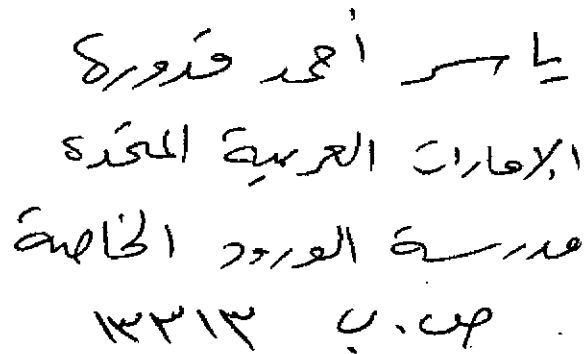 ياسر أحمد قدورة
الإمارات العربية المتحدة
مدرسة الورود الخاصة
ص.ب ١٣٣١٣